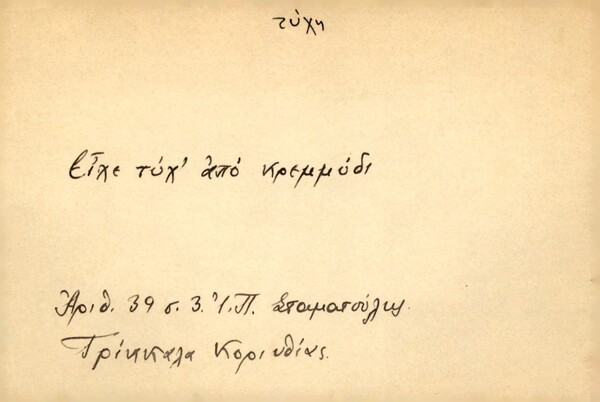 τύχη
Εἶχε τύχ' ἀπό κρεμμύδι
Ἀριθ. 39 σ. 3. Ἰ. Π. Σταματούλης.
Τρίκκαλα Κορινθίας.